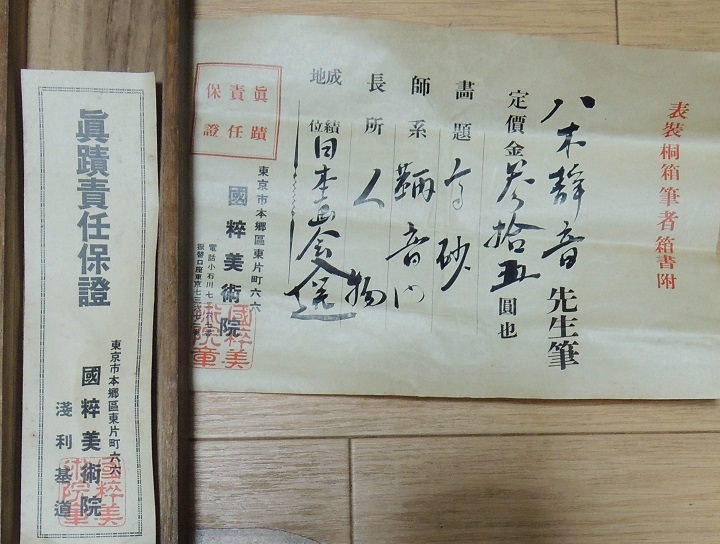 眞蹟責任保證
東京市本郷區東片町六六
國粹美術院
淺利基道
國粹美
術院章
表裝桐箱筆者箱書附
八木靜音先生筆
定價金參拾五圓也
畵題 高砂
師系 鞆音門
長所 人物
成績
地位 日本画会入選
眞蹟
責任
保證
東京市本郷區東片町六六
國粹美術院
國粹美
術院章